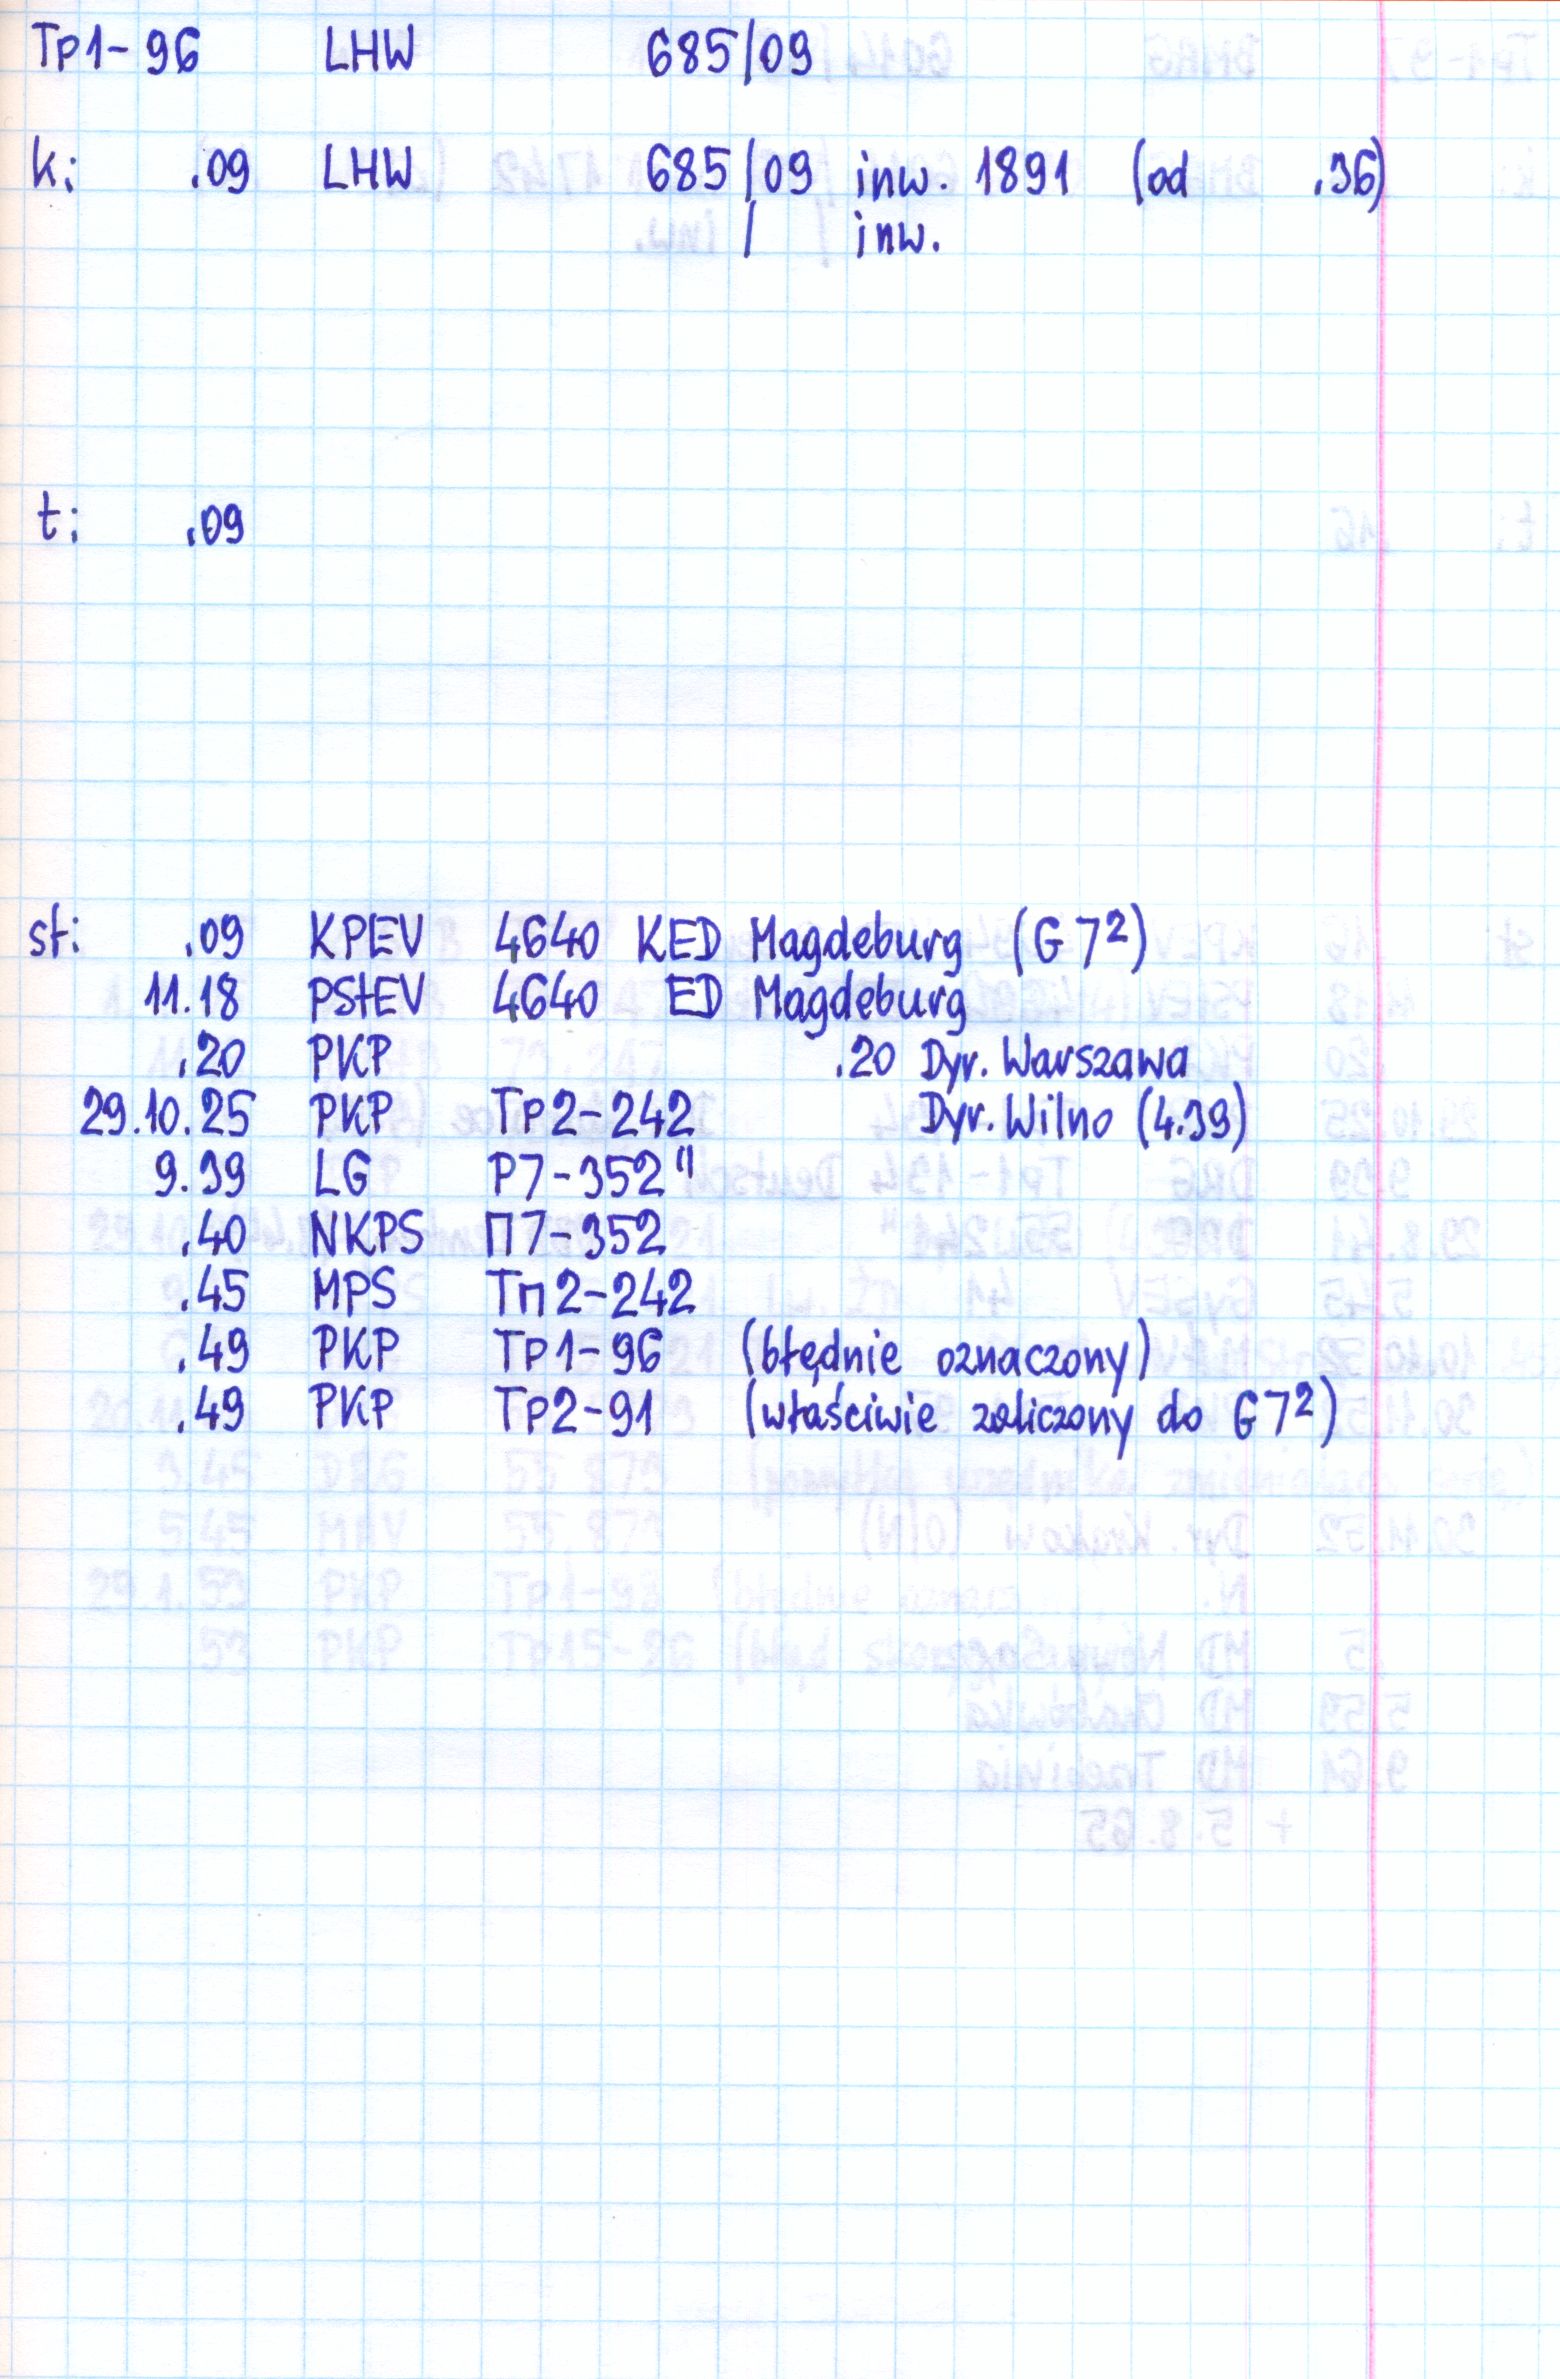 Tp1-96 LHW 685/09
k: .09 LHW 685/09 inw. 1891 (od .36)
/ inw.
t: .09
st: .09 KPEV 4640 KED Magdeburg (G 7²)
11.18 PStEV 4640 ED Magdeburg
.20 PKP .20 Dyr. Warszawa
29.10.25 PKP Tp2-242 Dyr. Wilno (4.39)
9.39 LG P7-352"
.40 NKPS П7-352
.45 MPS Тп2-242
.49 PKP Tp1-96 (błędnie oznaczony)
.49 PKP Tp2-91 (właściwie zaliczony do G7²)